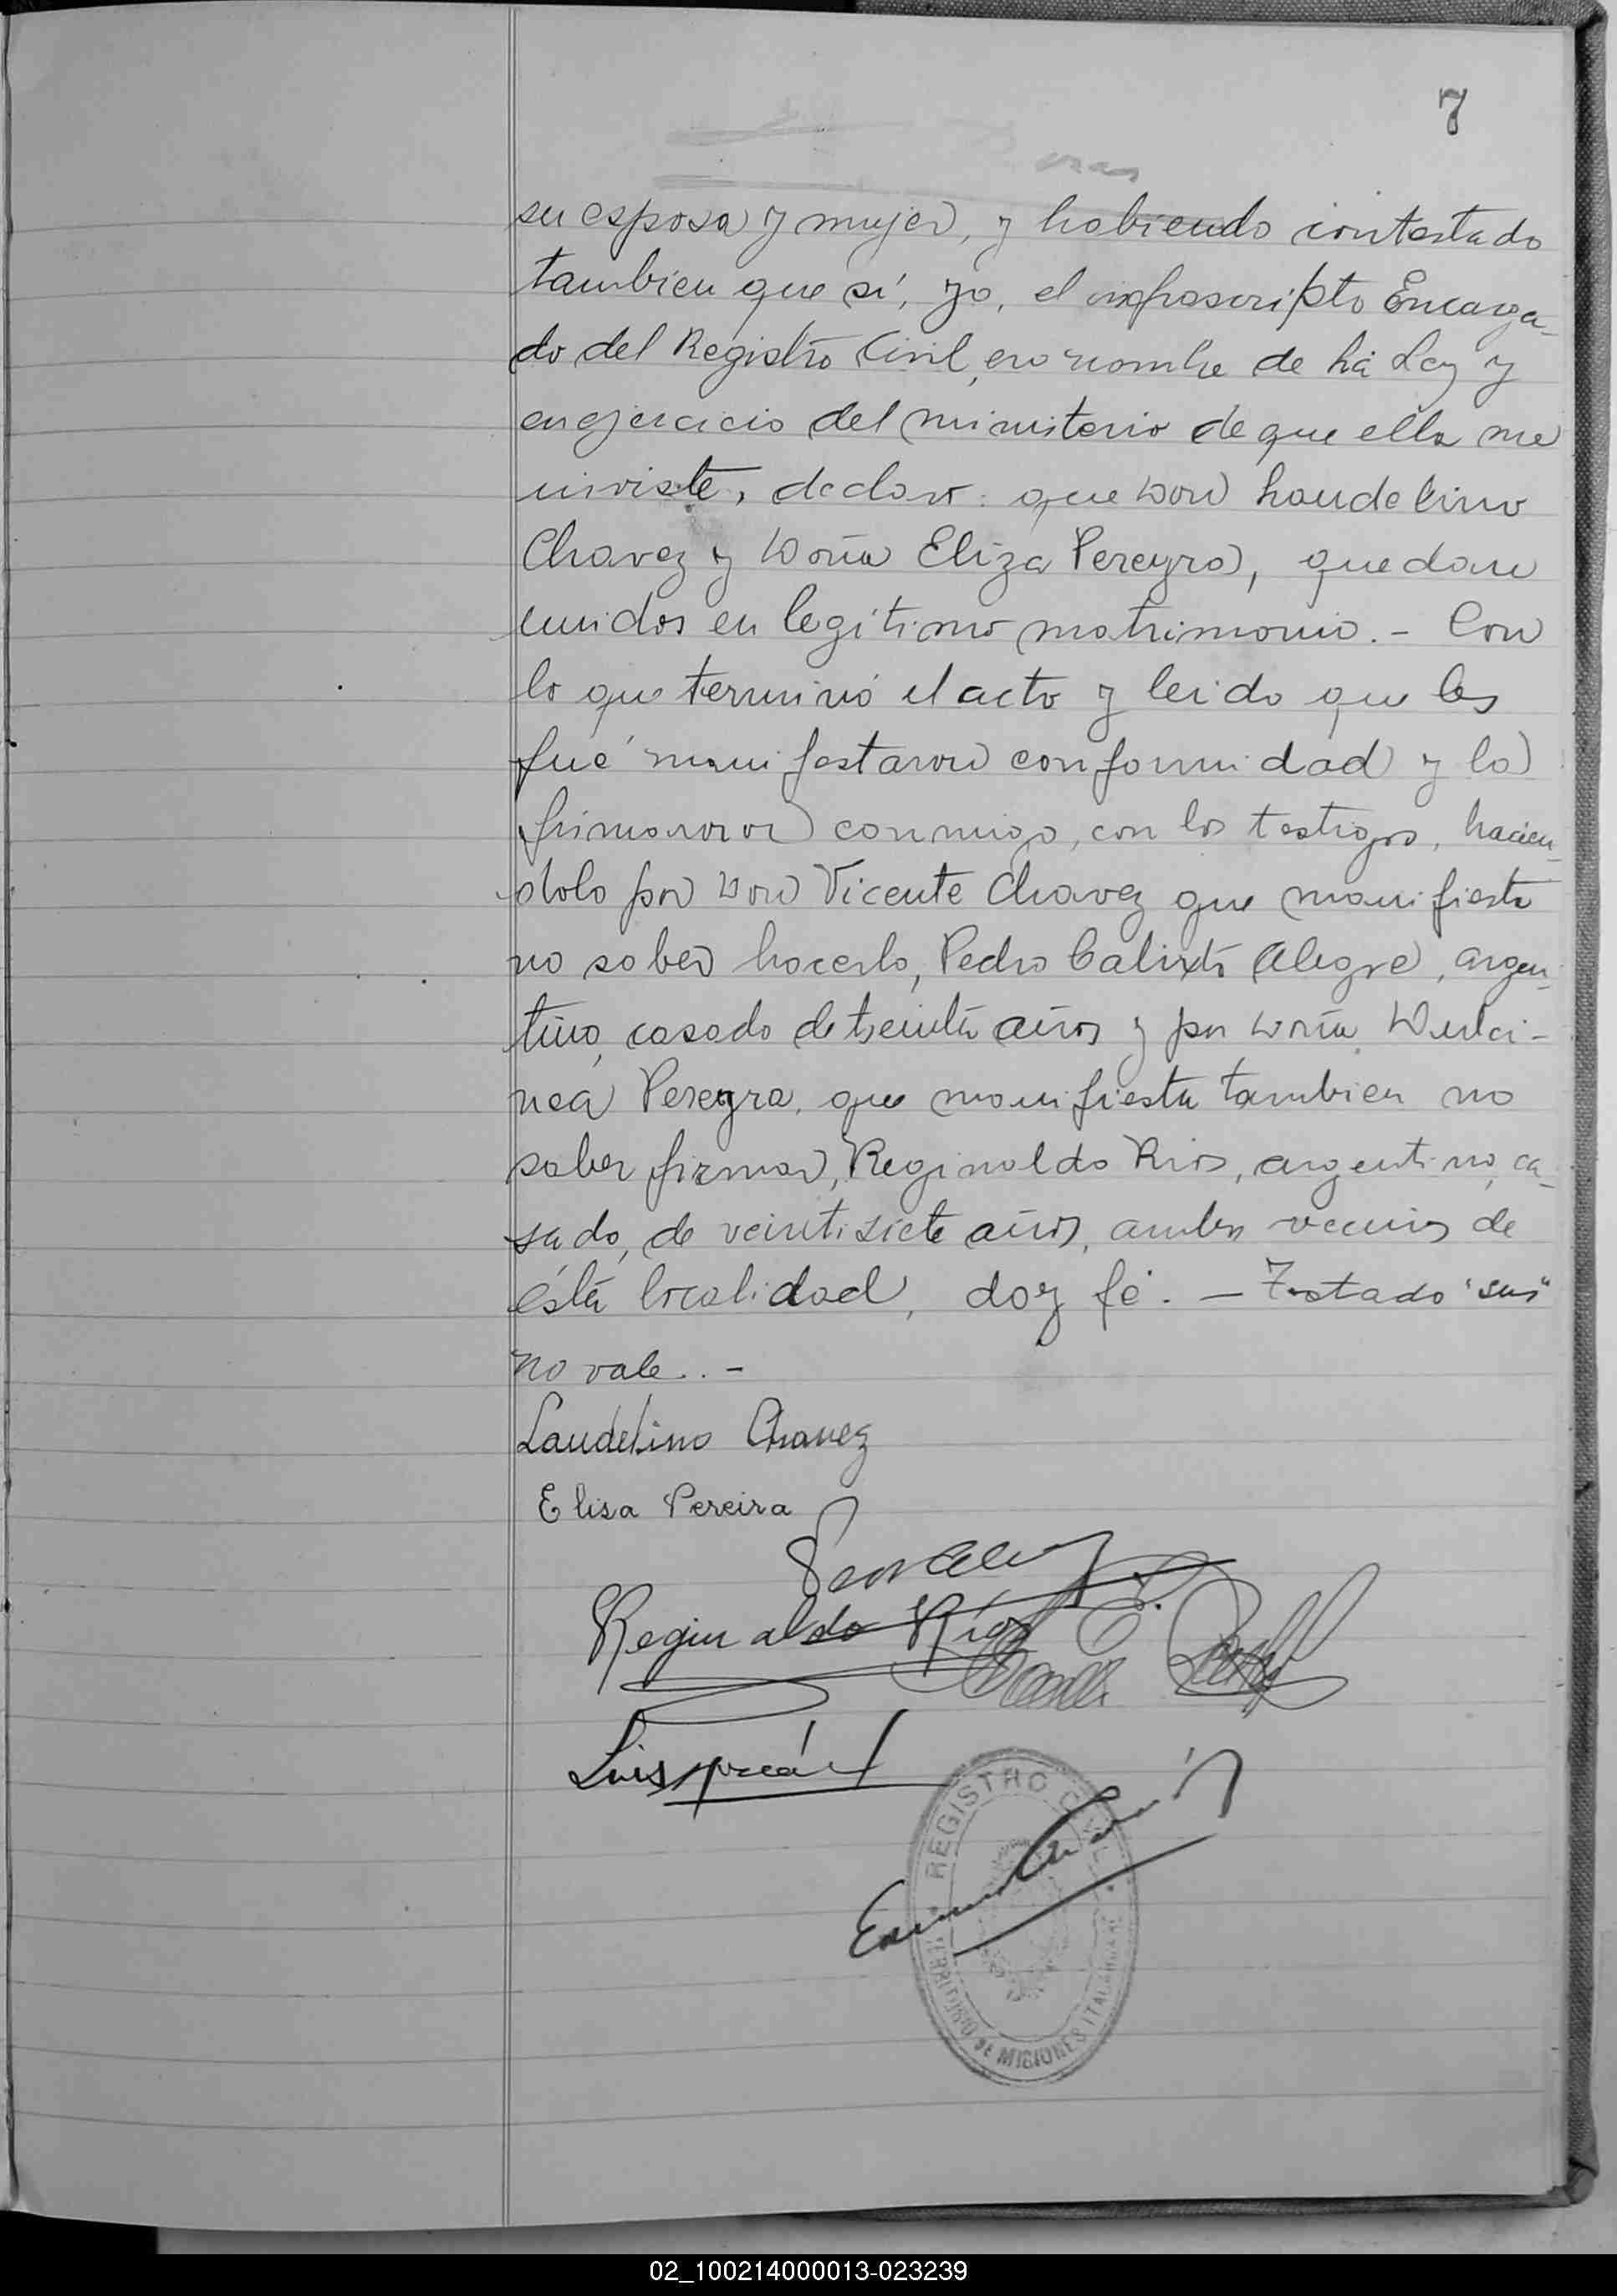 7
su esposa y mujer, y habiendo contestado
tambien que sí, yo, el infrascripto Encarga-
do del Registro Civil, en nombre de la Ley y
en ejercicio del ministerio de que ella me
inviste, declaro: que Don Laudelino
Chavez y Doña Eliza Pereyra, quedan
unidos en legítimo matrimonio. - Con
lo que terminó el acto y leido que les
fué manifestaron conformidad y la
firmaron conmigo, con los testigos, hacien-
dolo por Don Vicente Chavez que manifiesta
no saber hacerlo, Pedro Calixto Alegre, argen-
tino, casado de treinta años y por Doña Dulci-
nea Pereyra, que manifiesta tambien no
saber firmar, Reginaldo Rios, argentino, ca-
sado, de veintisiete años, ambos vecinos de
ésta localidad, doy fé. - Testado "sus"
no vale. . -
Laudelino Chavez
Elisa Pereira
Reginaldo Ríos
Luis
REGISTRO CIVIL
TERRITORIO DE MISIONES ITACARUARE
02_100214000013-023239